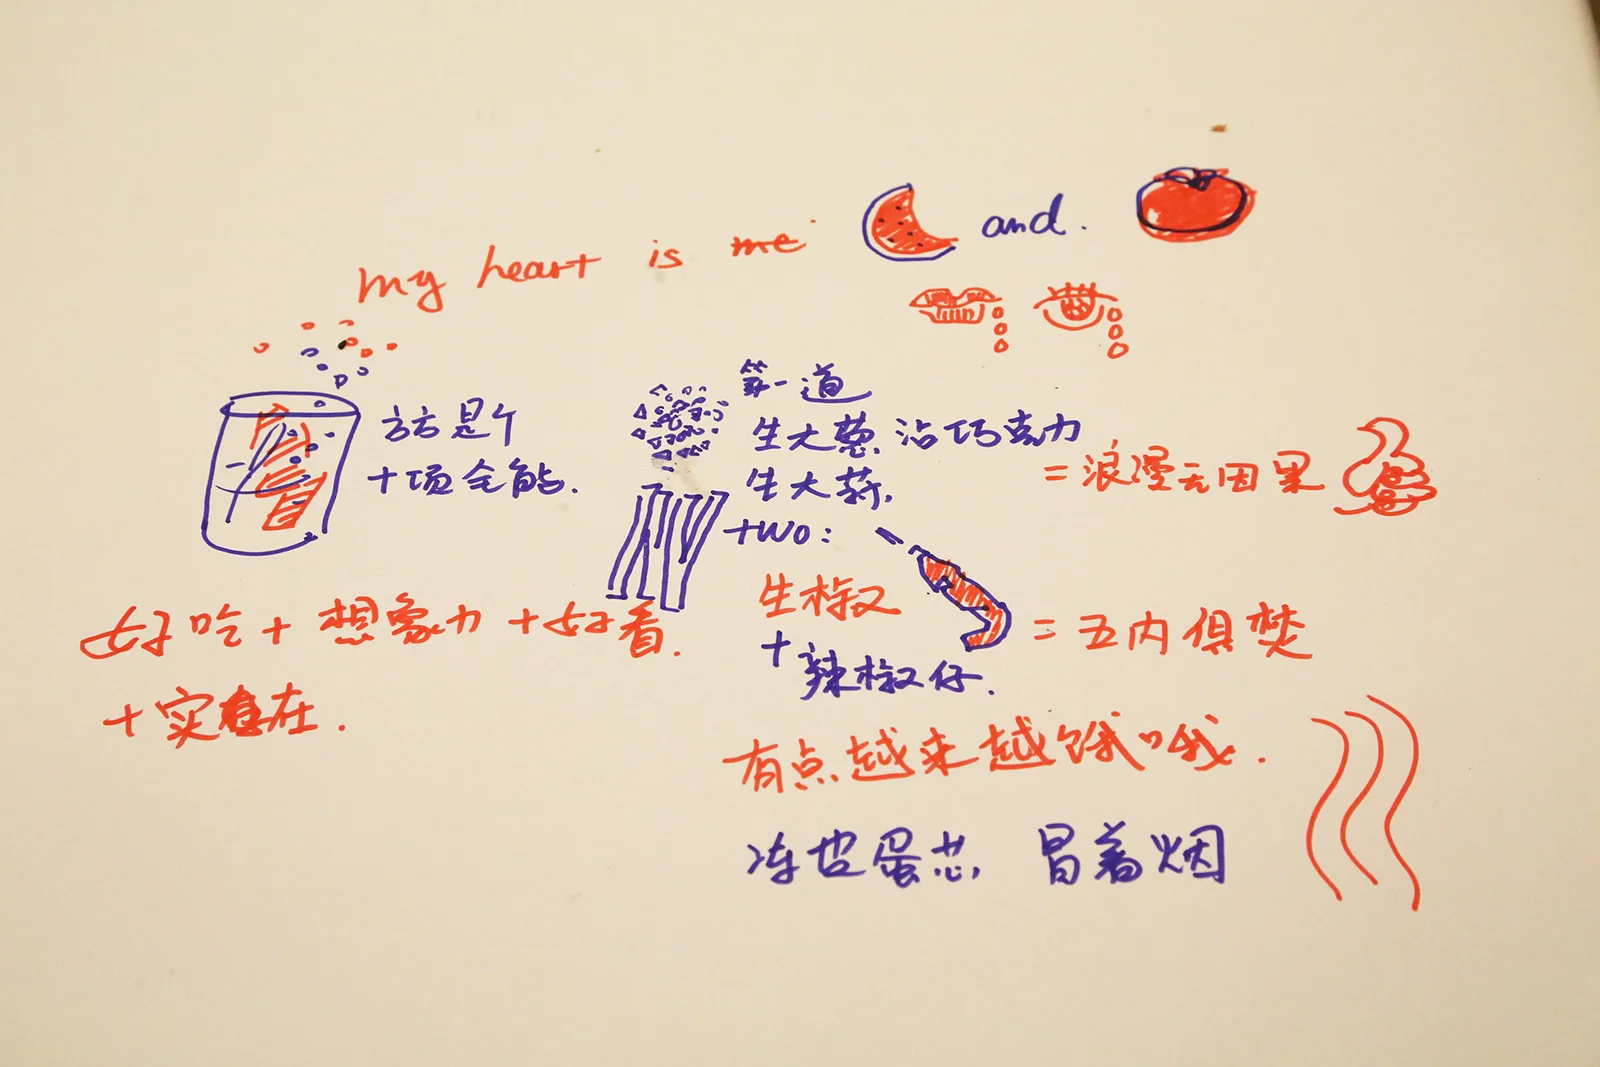 my heart is me and.
方方是个
十项全能.
第一道
生大葱 沾巧克力
生大蒜,
= 浪漫无因果
two:
生椒
+ 辣椒仔.
= 五内俱焚
好吃 + 想象力 + 好看.
+ 实在.
有点越来越饿哦.
冻也蛋芯, 冒着烟